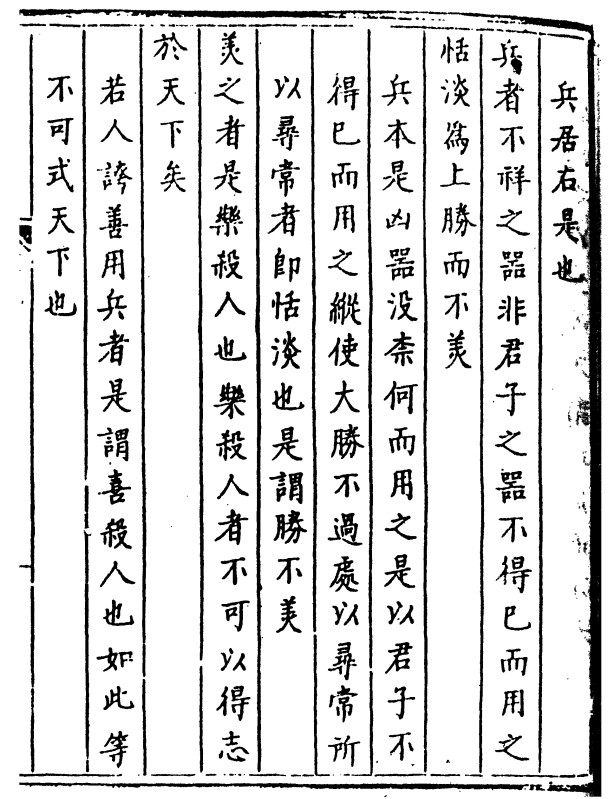 兵居右是也
兵者不祥之器非君子之器不得已而用之
恬淡爲上勝而不羙
兵本是凶器没柰何而用之是以君子不
得已而用之縱使大勝不過處以尋常所
以尋常者即恬淡也是謂勝不羙
羙之者是樂殺人也樂殺人者不可以得志
於天下矣
若人誇善用兵者是謂喜殺人也如此等
不可式天下也